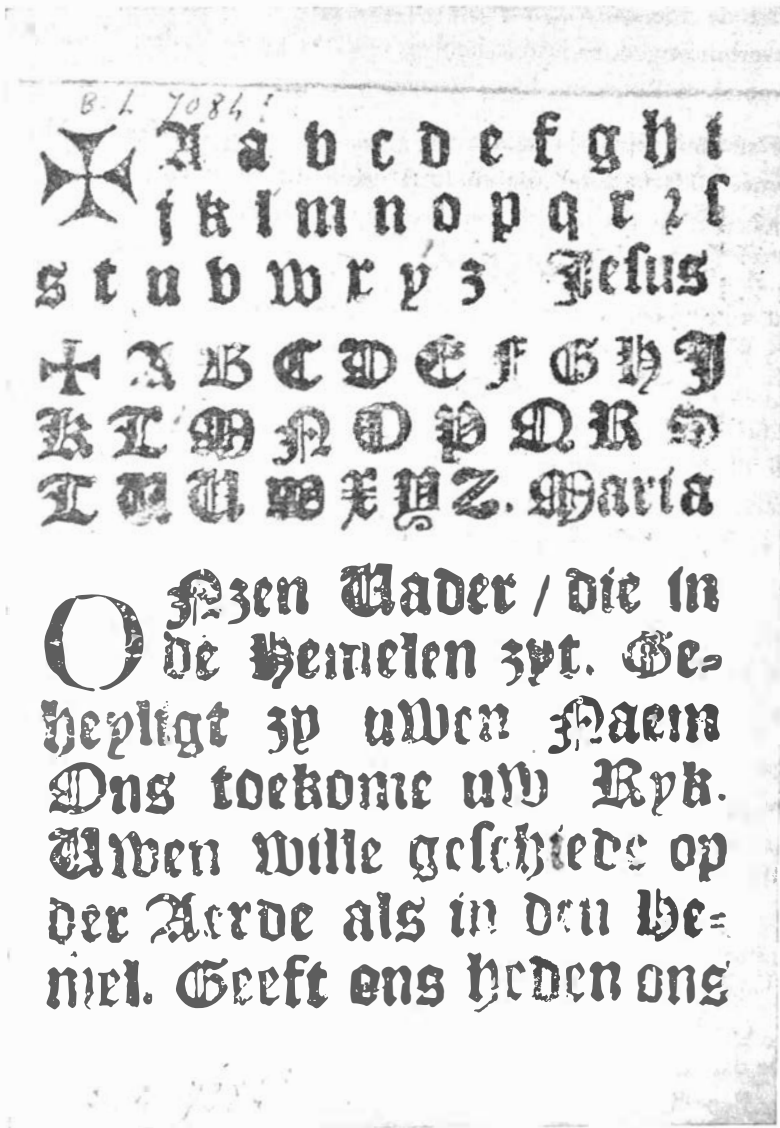 B. L. 7084
✠ A a b c d e f g h i
j k l m n o p q r ꝛ ſ
s t u v w x y z Jeſus
✠ A B C D E F G H J
K L M N O P Q R S
T U U W X Y Z. Maria
ONzen Vader / die in
de Hemelen zyt. Ge⸗
heyligt zy uwen Naem
Ons toekome uw Ryk.
Uwen wille geſchiede op
der Aerde als in den He⸗
mel. Geeft ons heden ons